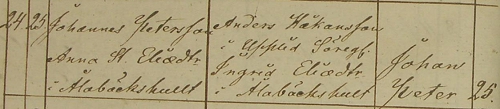 24 25 Johannes Petersson
Anna St. Eliædtr
i Ålabäckshult
Anders Håkansson
i Applid Söregf.
Ingrid Eliædtr
i Ålabäckshult
Johan
Peter 25